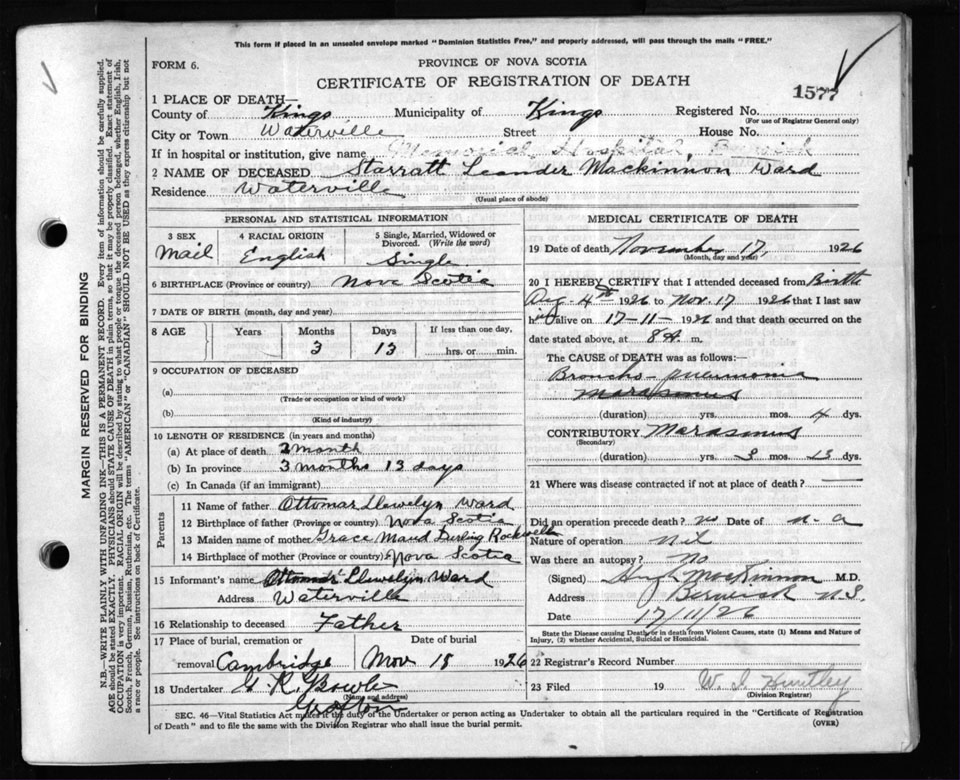 This form if placed in an unsealed envelope marked "Dominion Statistics Free," and properly addressed, will pass through the mails "FREE."
FORM 6.
PROVINCE OF NOVA SCOTIA
CERTIFICATE OF REGISTRATION OF DEATH
1577
1 PLACE OF DEATH—
County of Kings Municipality of Kings Registered No.
(For use of Registrar General only)
City or Town Waterville Street House No.
If in hospital or institution, give name Memorial Hospital, Berwick
2 NAME OF DECEASED Starratt Leander Mackinnon Ward
Residence Waterville
(Usual place of abode)
PERSONAL AND STATISTICAL INFORMATION
3 SEX 4 RACIAL ORIGIN 5 Single, Married, Widowed or Divorced. (Write the word)
Mail English Single
6 BIRTHPLACE (Province or country) Nova Scotia
7 DATE OF BIRTH (month, day and year)
8 AGE Years Months Days If less than one day,
3 13 hrs. or min.
9 OCCUPATION OF DECEASED
(a)
(Trade or occupation or kind of work)
(b)
(Kind of industry)
10 LENGTH OF RESIDENCE (in years and months)
(a) At place of death 2 month
(b) In province 3 months 13 days
(c) In Canada (if an immigrant)
Parents
11 Name of father Ottomar Llewelyn Ward
12 Birthplace of father (Province or country) Nova Scotia
13 Maiden name of mother Grace Maud Rockwell
14 Birthplace of mother (Province or country) Nova Scotia
15 Informant's name Ottomar Llewelyn Ward
Address Waterville
16 Relationship to deceased Father
17 Place of burial, cremation or Date of burial
removal Cambridge Nov 18 1926
18 Undertaker
(Name and address)
Grafton
MEDICAL CERTIFICATE OF DEATH
19 Date of death November 17, 1926
(Month, day and year)
20 I HEREBY CERTIFY that I attended deceased from Birth
Aug. 4th 1926 to Nov. 17 1926 that I last saw
him alive on 17-11-1926 and that death occurred on the
date stated above, at 8 A. m.
The CAUSE of DEATH was as follows:—
Broncho-pneumonia
Marasmus
(duration) yrs. mos. 4 dys.
CONTRIBUTORY Marasmus
(Secondary)
(duration) yrs. 3 mos. 13 dys.
21 Where was disease contracted if not at place of death?
Did an operation precede death? no Date of n-a
Nature of operation Nil
Was there an autopsy? No
(Signed) Hugh MacKinnon M.D.
Address Berwick N.S.
Date 17/11/26
State the Disease causing Death, or in death from Violent Causes, state (1) Means and Nature of Injury, (2) whether Accidental, Suicidal or Homicidal.
22 Registrar's Record Number
23 Filed 19 W. I. Huntley
(Division Registrar)
SEC. 46—Vital Statistics Act makes it the duty of the Undertaker or person acting as Undertaker to obtain all the particulars required in the "Certificate of Registration
of Death" and to file the same with the Division Registrar who shall issue the burial permit.
(OVER)
MARGIN RESERVED FOR BINDING
N.B.—WRITE PLAINLY WITH UNFADING INK—THIS IS A PERMANENT RECORD. Every item of information should be carefully supplied.
AGE should be stated EXACTLY. PHYSICIANS should STATE CAUSE OF DEATH in plain terms, so that it may be properly classified. Exact statement of
OCCUPATION is very important. RACIAL ORIGIN will be described by stating to what people or tongue the deceased person belonged, whether English, Irish,
Scotch, French, German, Russian, Ruthenian, etc. The terms "AMERICAN" or "CANADIAN" SHOULD NOT BE USED as they express citizenship but not
a race or people. See instructions on back of Certificate.